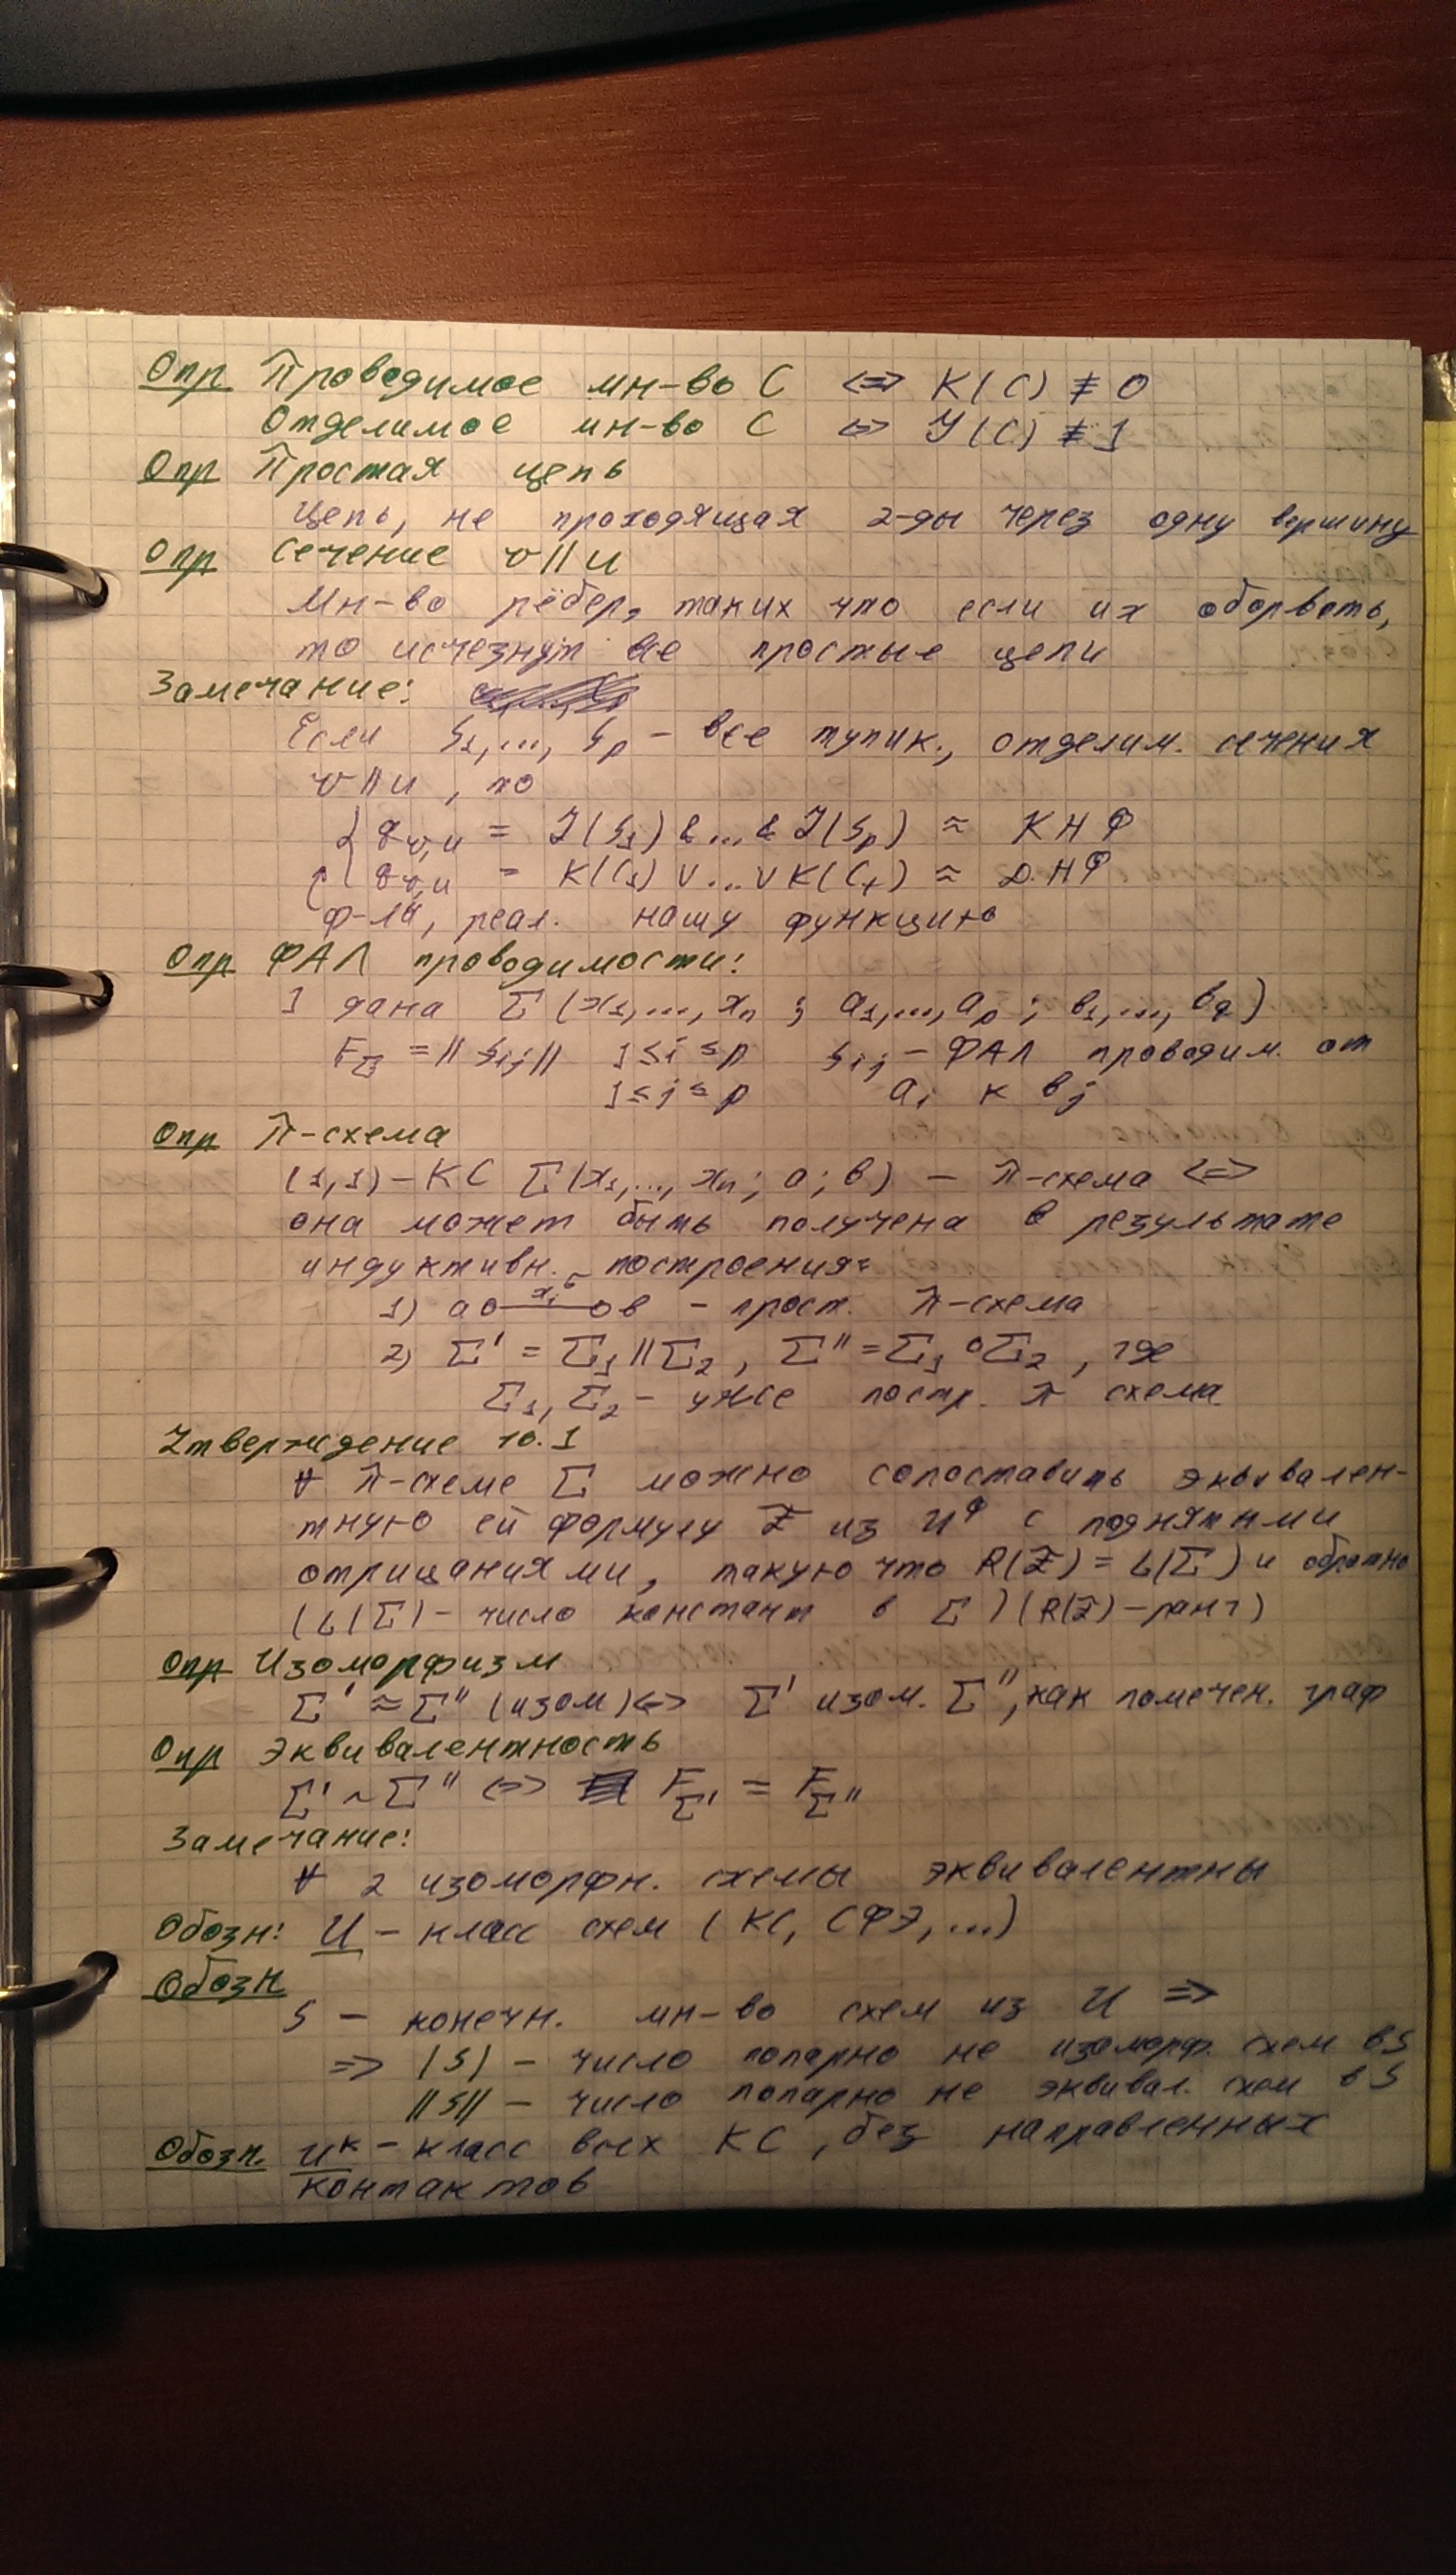 Опр Проводимое мн-во C <=> K(C) ≢ 0
Отделимое мн-во C <=> J(C) ≢ 1
Опр Простая цепь
Цепь, не проходящая 2-ды через одну вершину
Опр Сечение v||u
Мн-во рёбер, таких что если их оборвать,
то исчезнут все простые цепи
Замечание:
Если S₁,..., Sₚ - все тупик., отделим. сечения
v||u, то
{ g_{v,u} = J(S₁) & ... & J(Sₚ) ≈ КНФ
{ g_{v,u} = K(C₁) ∨ ... ∨ K(Cₜ) ≈ ДНФ
Ф-ла, реал. нашу функцию
Опр ФАЛ проводимости:
] дана Σ(x₁,..., xₙ; a₁,..., aₚ; b₁,..., b_q)
F_Σ = || S_{ij} || 1≤i≤p S_{ij} - ФАЛ проводим. от
1≤j≤p aᵢ к bⱼ
Опр π-схема
(1,1)-КС Σ(x₁,..., xₙ; a; b) - π-схема <=>
она может быть получена в результате
индуктивн. построения:
1) a o—xᵢ^σ—o b - прост. π-схема
2) Σ' = Σ₁||Σ₂, Σ'' = Σ₁∘Σ₂, где
Σ₁, Σ₂ - уже постр. π схема
Утверждение 10.1
∀ π-схеме Σ можно сопоставить эквивален-
тную ей формулу Z из U^Ф с поднятыми
отрицаниями, такую что R(Z) = L(Σ) и обратно
(L(Σ) - число констант в Σ) (R(Z) - ранг)
Опр Изоморфизм
Σ' ≈ Σ'' (изом) <=> Σ' изом. Σ'', как помечен. граф
Опр Эквивалентность
Σ' ~ Σ'' <=> F_{Σ'} = F_{Σ''}
Замечание:
∀ 2 изоморфн. схемы эквивалентны
Обозн: U - класс схем (КС, СФЭ, ...)
Обозн
S - конечн. мн-во схем из U =>
=> |S| - число попарно не изоморф. схем в S
||S|| - число попарно не эквивал. схем в S
Обозн. U^K - класс всех КС, без направленных
контактов